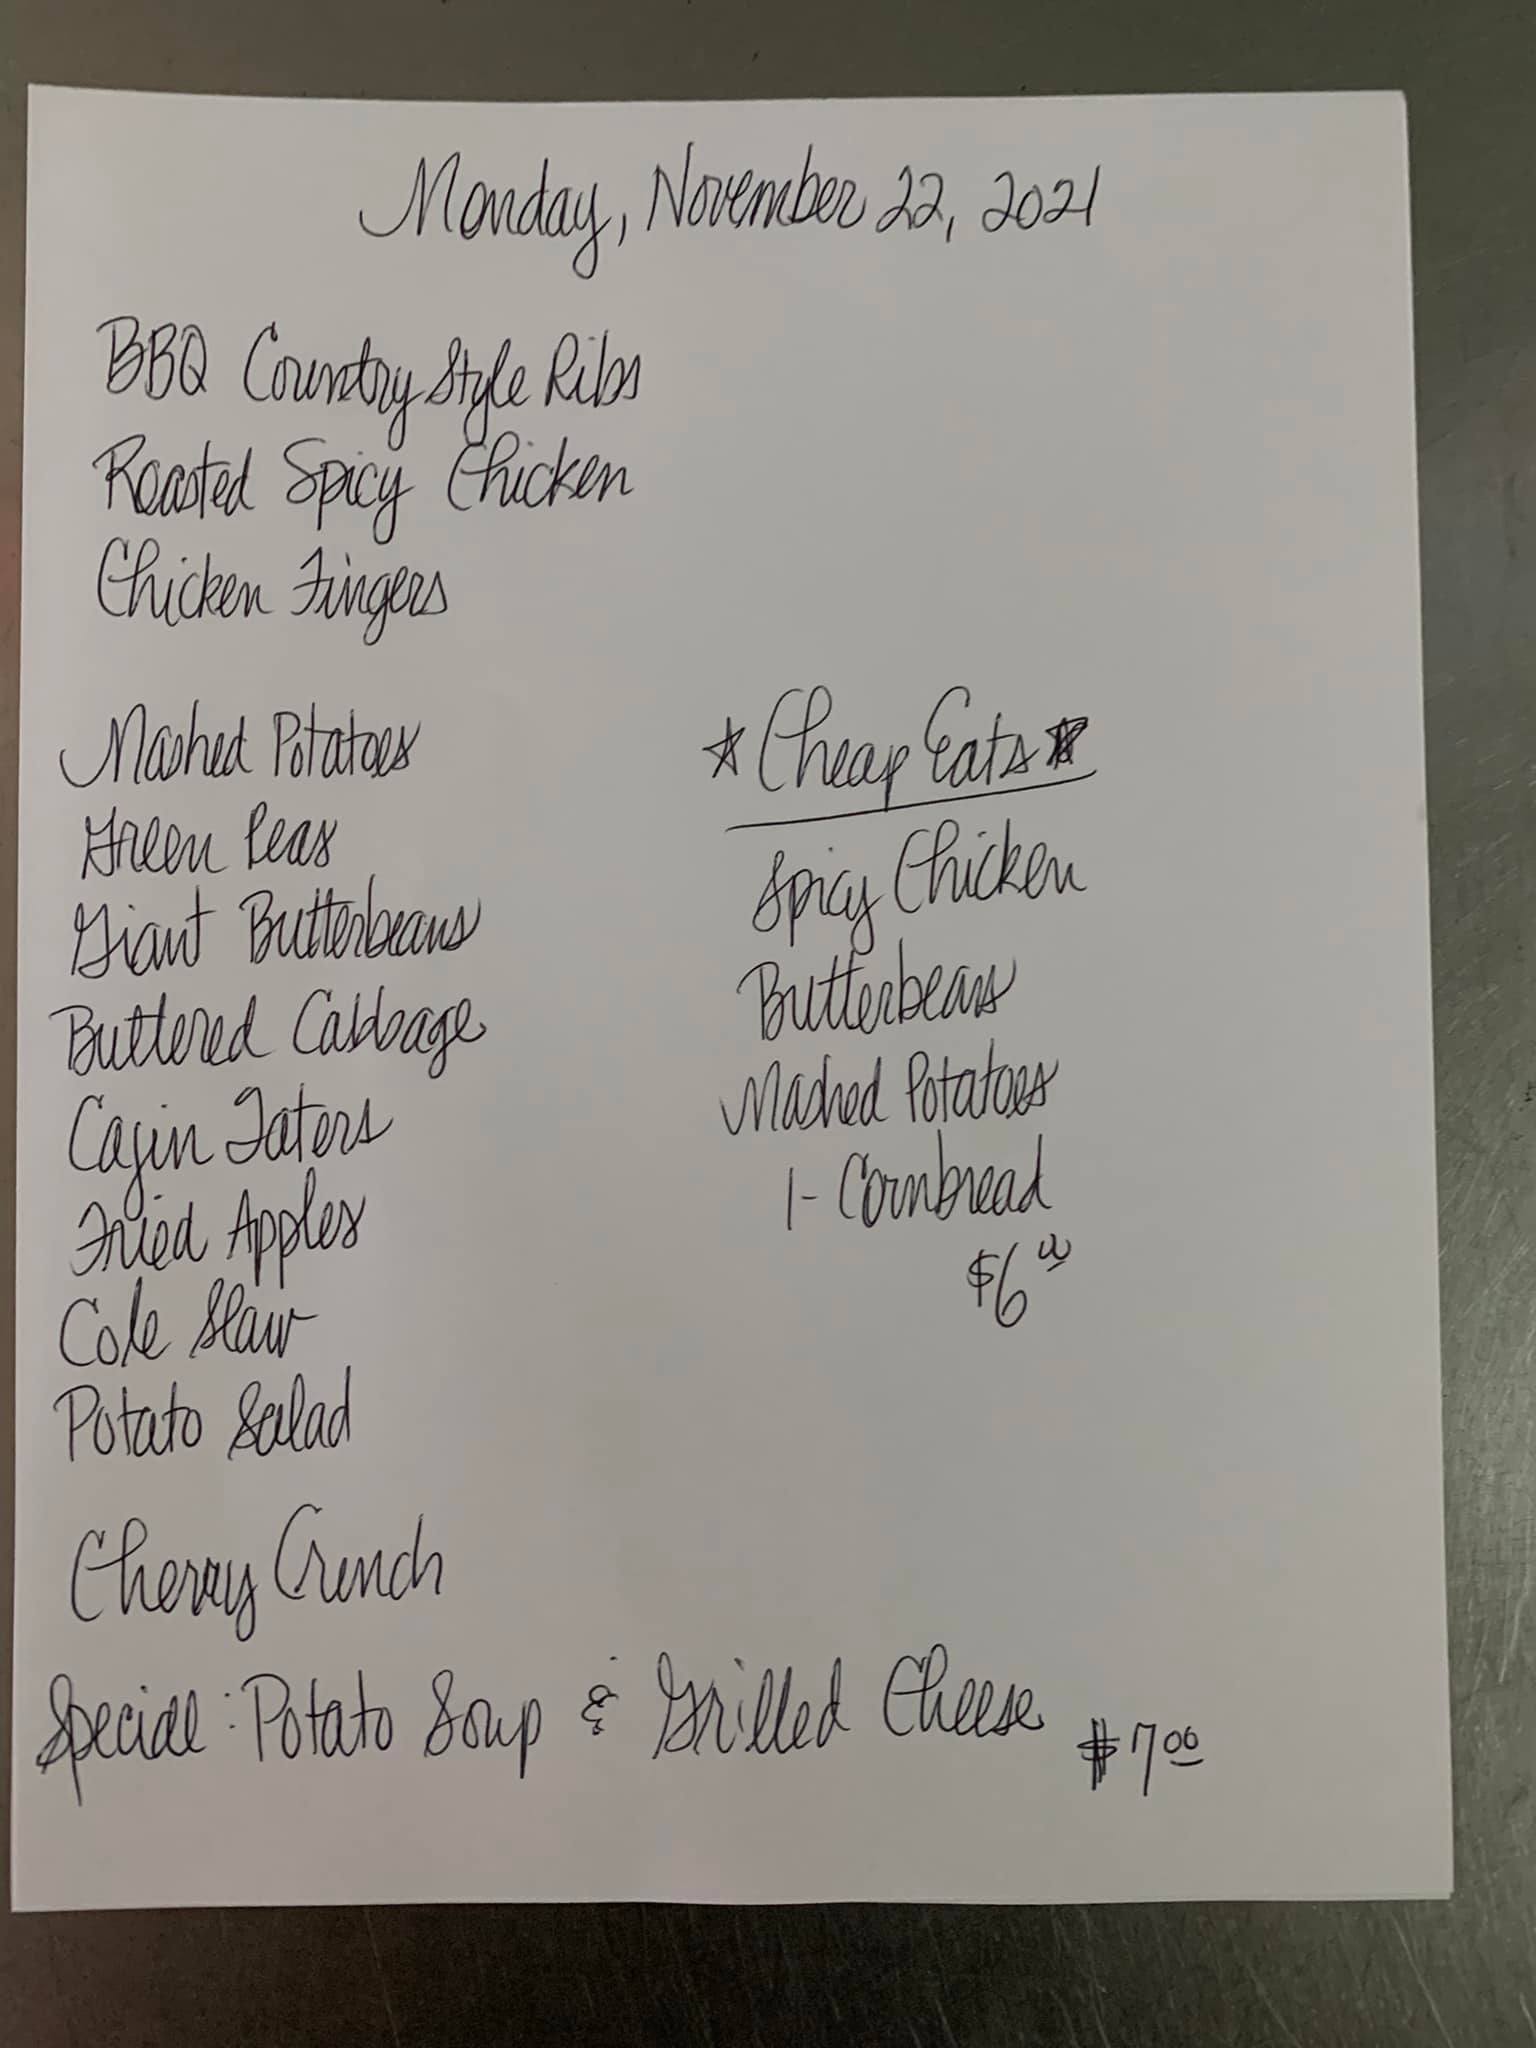 Monday, November 22, 2021
BBQ Country Style Ribs
Roasted Spicy Chicken
Chicken Fingers
Mashed Potatoes
Green Peas
Giant Butterbeans
Buttered Cabbage
Cajin Taters
Fried Apples
Cole Slaw
Potato Salad
Cherry Crunch
☆ Cheap Eats ☆
Spicy Chicken
Butterbeans
Mashed Potatoes
1- Cornbread
$6.00
Special: Potato Soup & Grilled Cheese $7.00